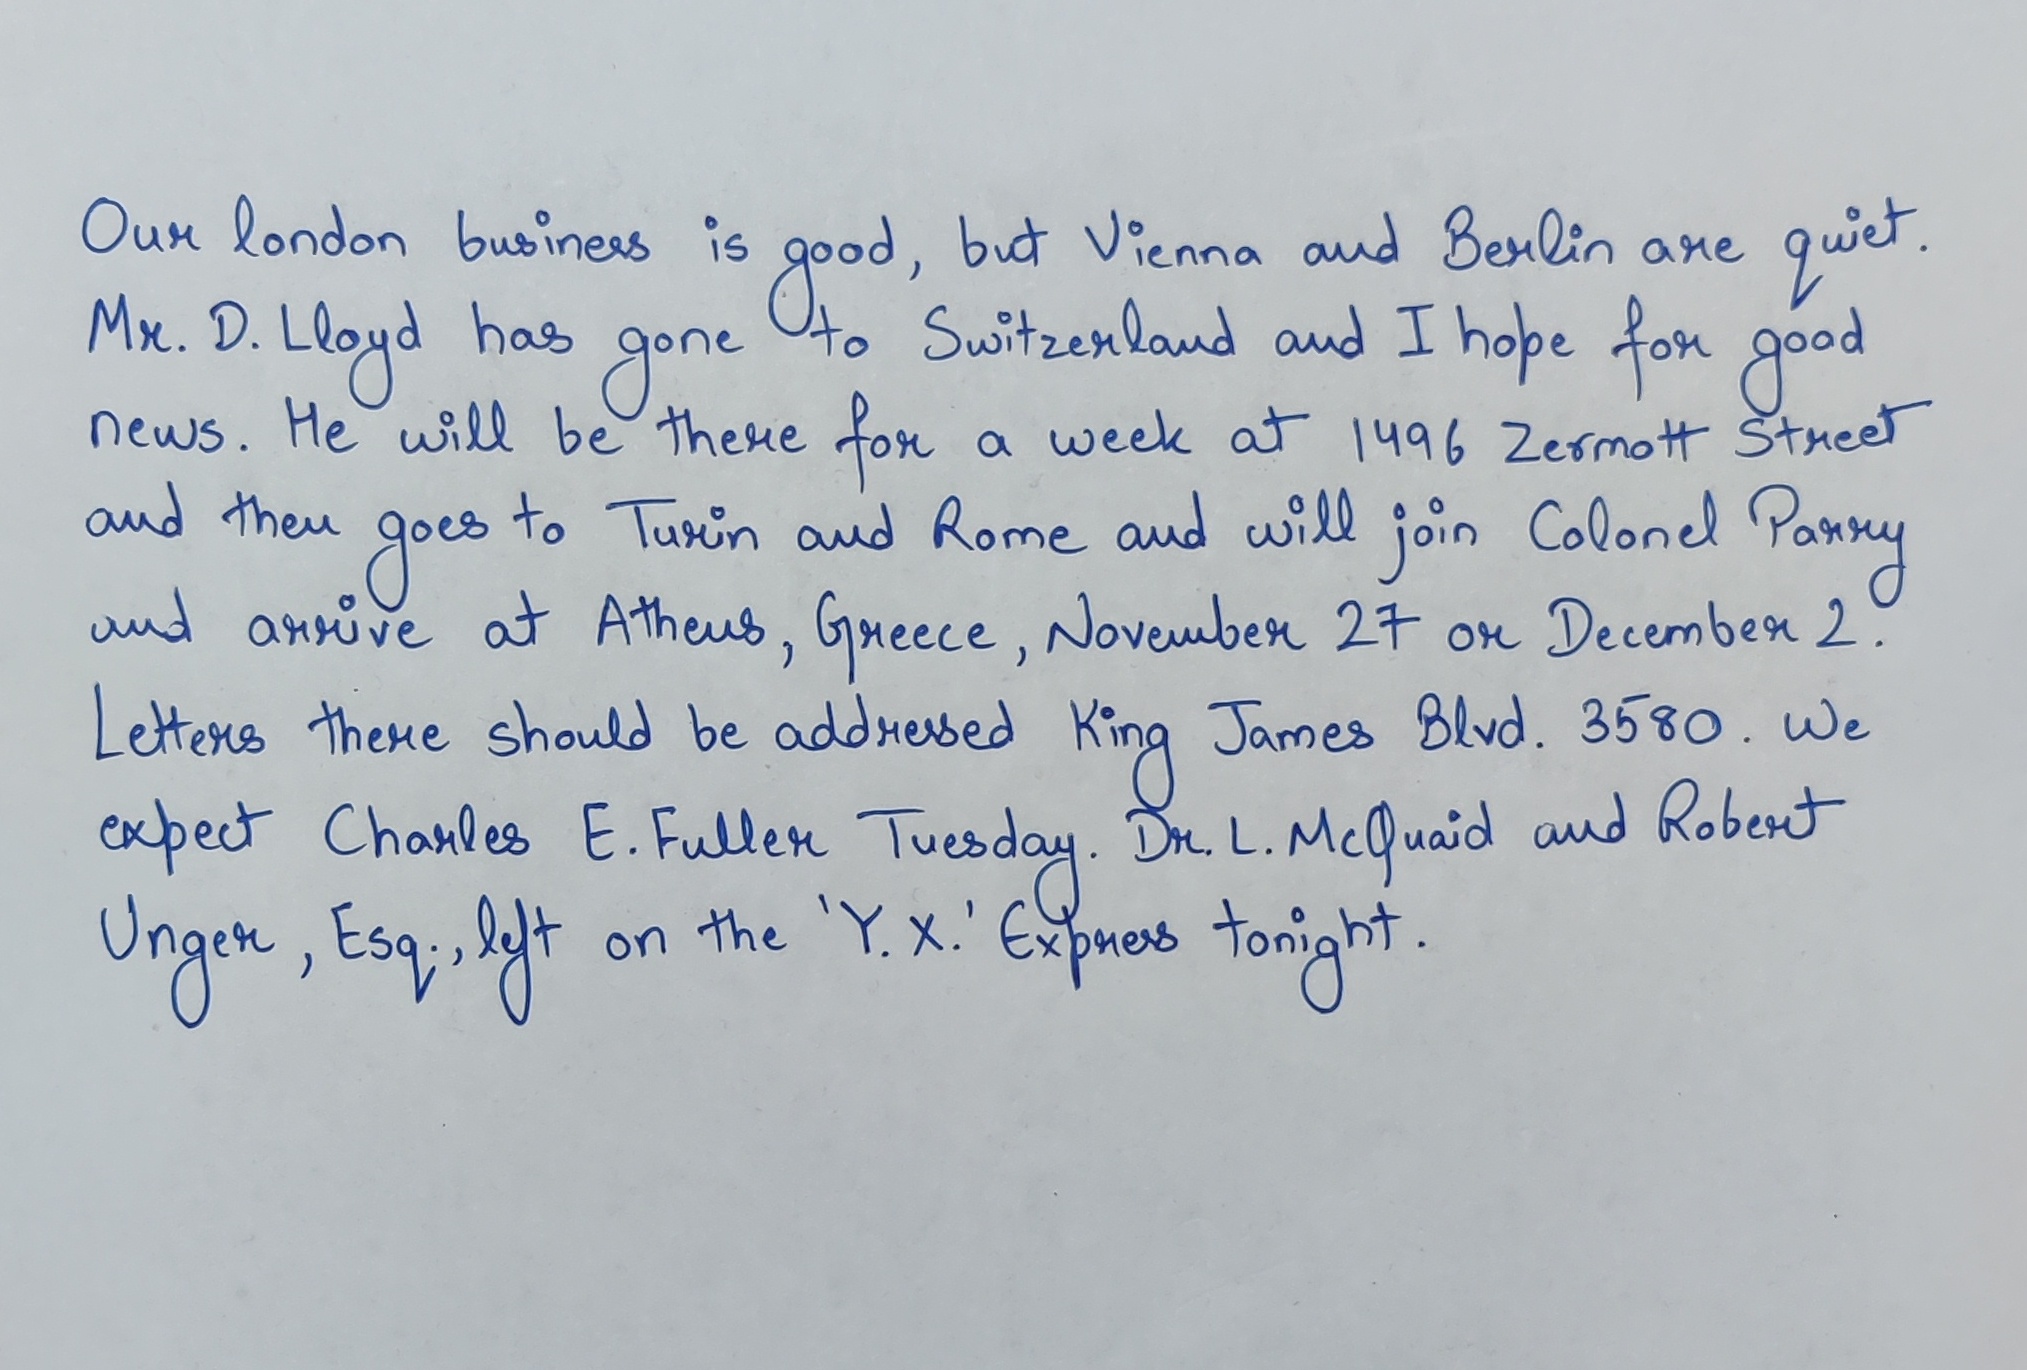 Our london business is good, but Vienna and Berlin are quiet.
Mr. D. Lloyd has gone to Switzerland and I hope for good
news. He will be there for a week at 1496 Zermott Street
and then goes to Turin and Rome and will join Colonel Parry
and arrive at Athens, Greece, November 27 or December 2.
Letters there should be addressed King James Blvd. 3580. We
expect Charles E. Fuller Tuesday. Dr. L. McQuaid and Robert
Unger, Esq., left on the 'Y. X.' Express tonight.